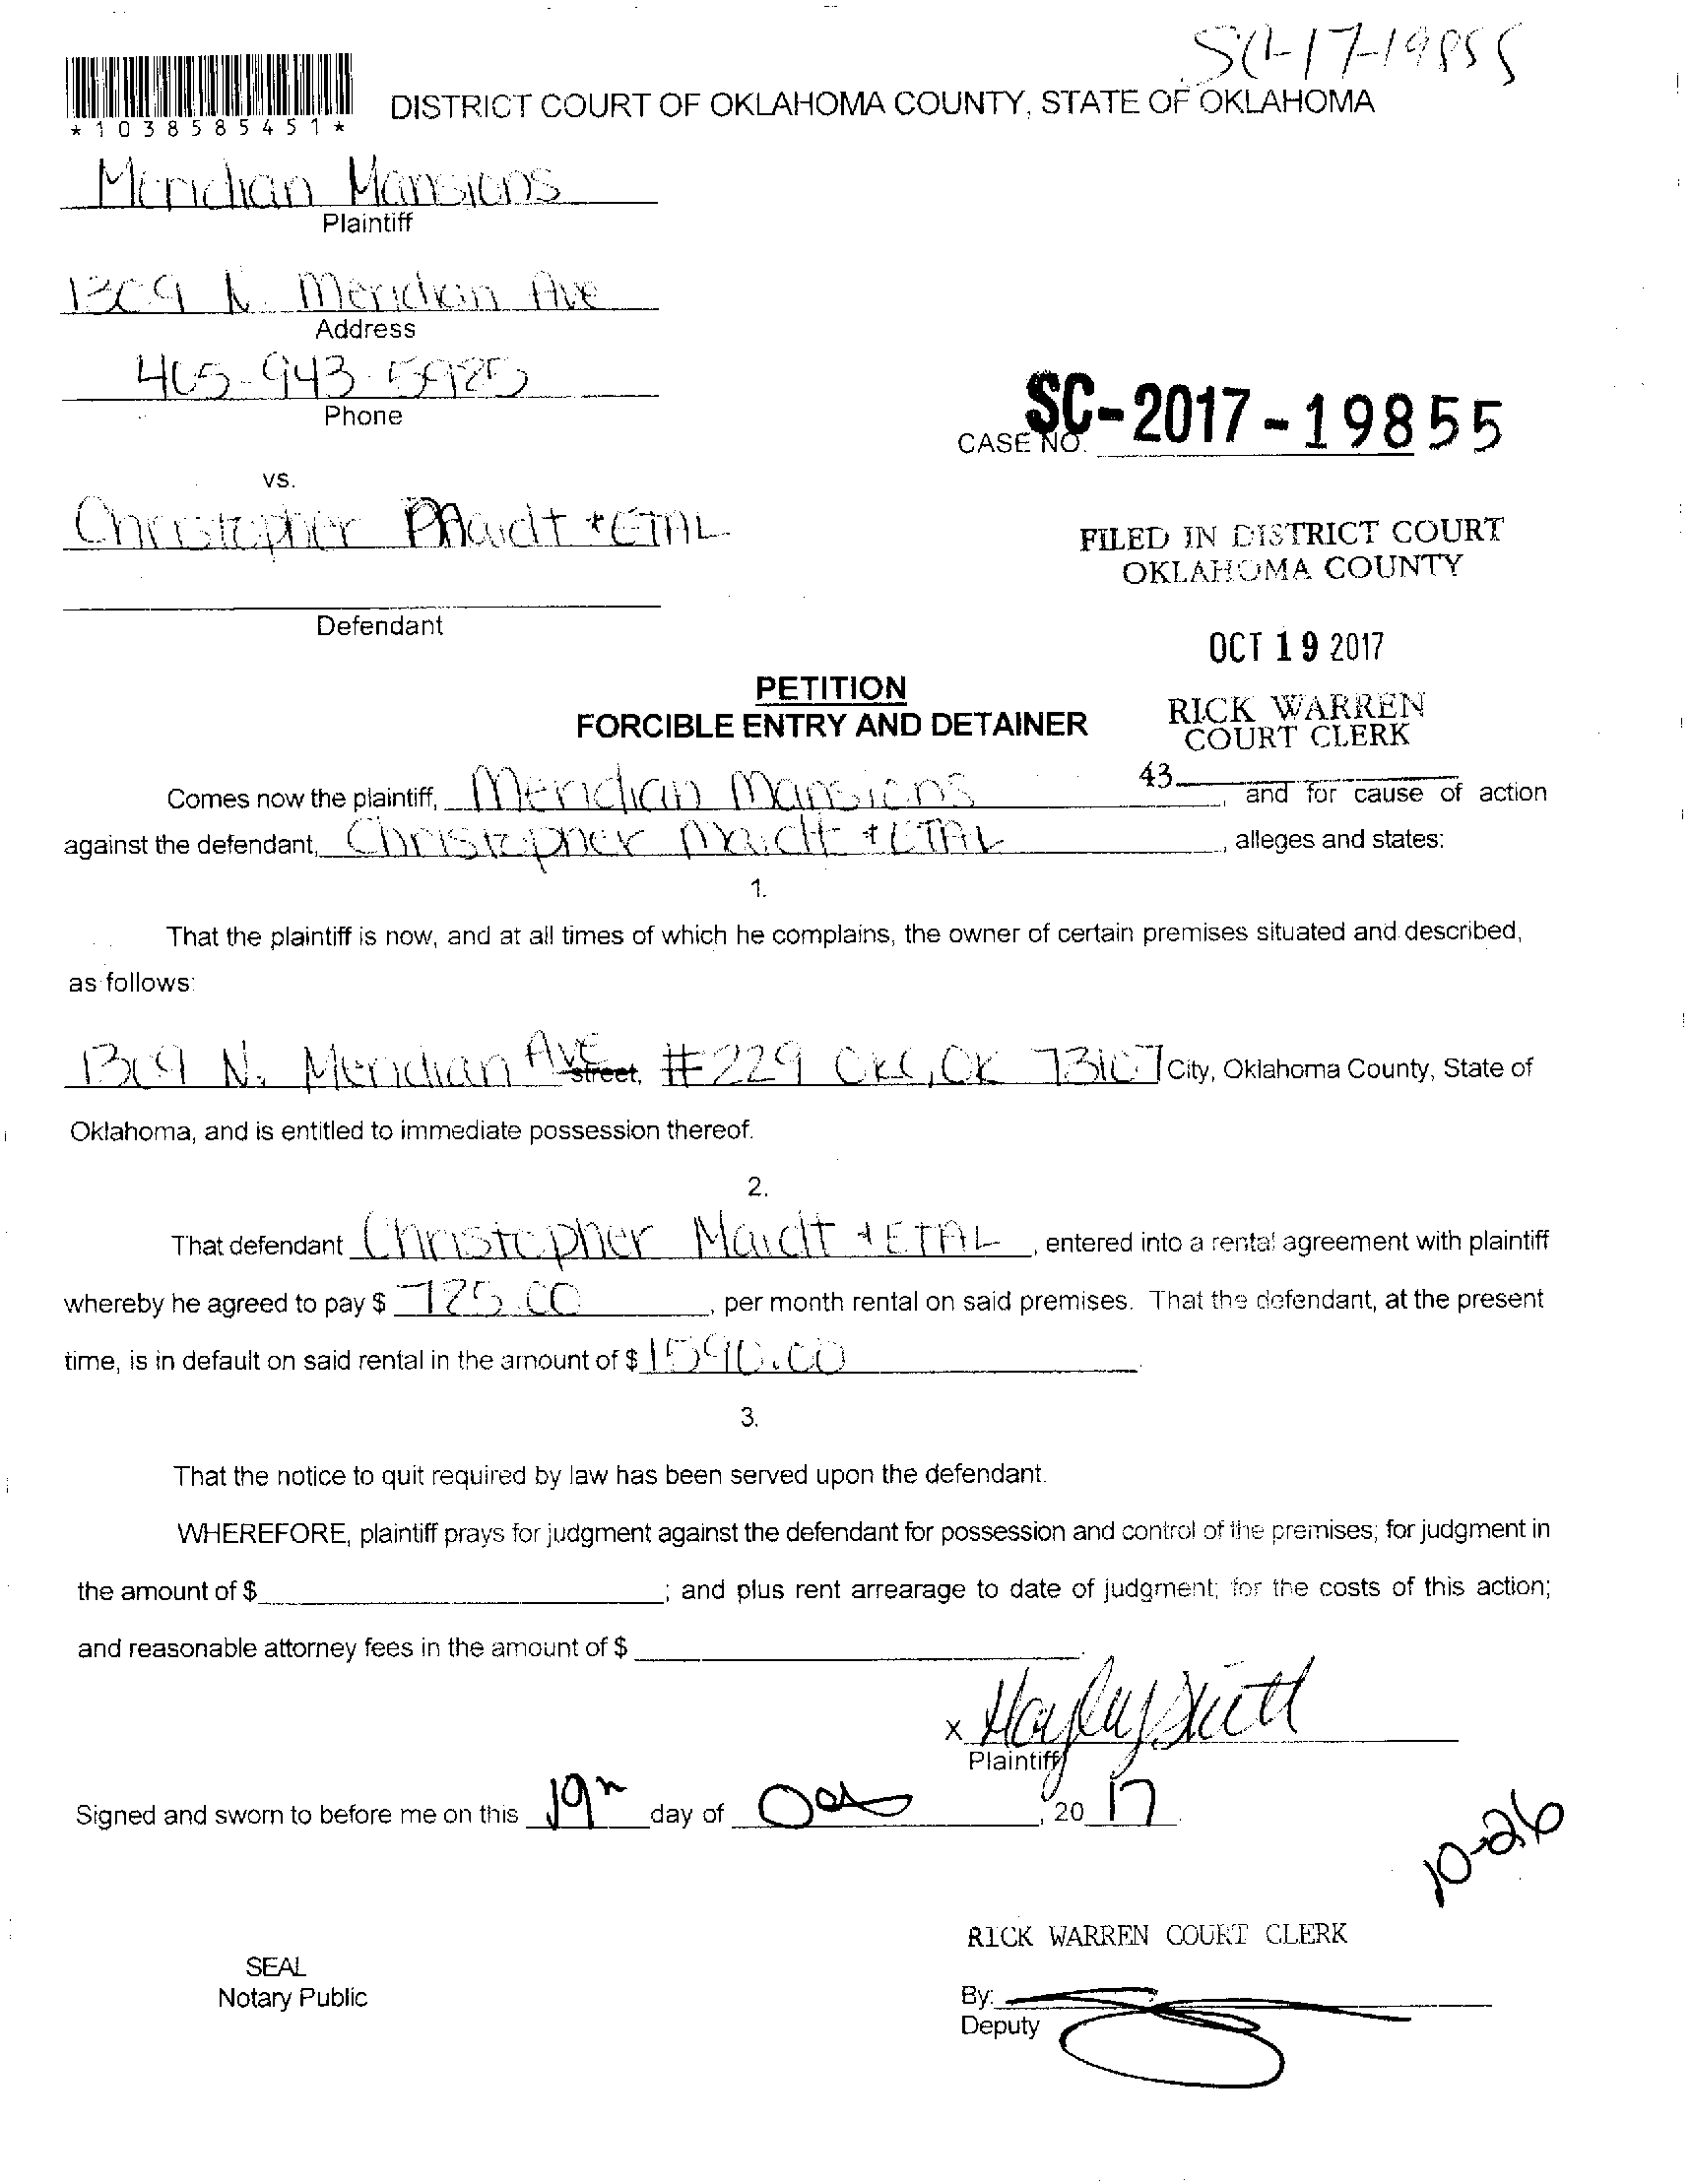 SC-17-19855
*1038585451*
DISTRICT COURT OF OKLAHOMA COUNTY, STATE OF OKLAHOMA
Meridian Mansions
Plaintiff
1309 N. Meridian Ave
Address
405-943-5925
Phone
SC-2017-19855
CASE NO.
vs.
Christopher Maidt + ETAL
FILED IN DISTRICT COURT
OKLAHOMA COUNTY
Defendant
OCT 19 2017
PETITION
FORCIBLE ENTRY AND DETAINER
RICK WARREN
COURT CLERK
43
Comes now the plaintiff, Meridian Mansions, and for cause of action
against the defendant, Christopher Maidt + ETAL, alleges and states:
1.
That the plaintiff is now, and at all times of which he complains, the owner of certain premises situated and described,
as follows:
1309 N. Meridian Ave street, #229 OKC, OK 73107 City, Oklahoma County, State of
Oklahoma, and is entitled to immediate possession thereof.
2.
That defendant Christopher Maidt + ETAL, entered into a rental agreement with plaintiff
whereby he agreed to pay $ 725.00, per month rental on said premises. That the defendant, at the present
time, is in default on said rental in the amount of $ 1590.00.
3.
That the notice to quit required by law has been served upon the defendant.
WHEREFORE, plaintiff prays for judgment against the defendant for possession and control of the premises; for judgment in
the amount of $ ; and plus rent arrearage to date of judgment; for the costs of this action;
and reasonable attorney fees in the amount of $ .
x Hayley
Plaintiff
Signed and sworn to before me on this 19th day of Oct, 2017.
10-26
RICK WARREN COURT CLERK
SEAL
Notary Public
By:
Deputy